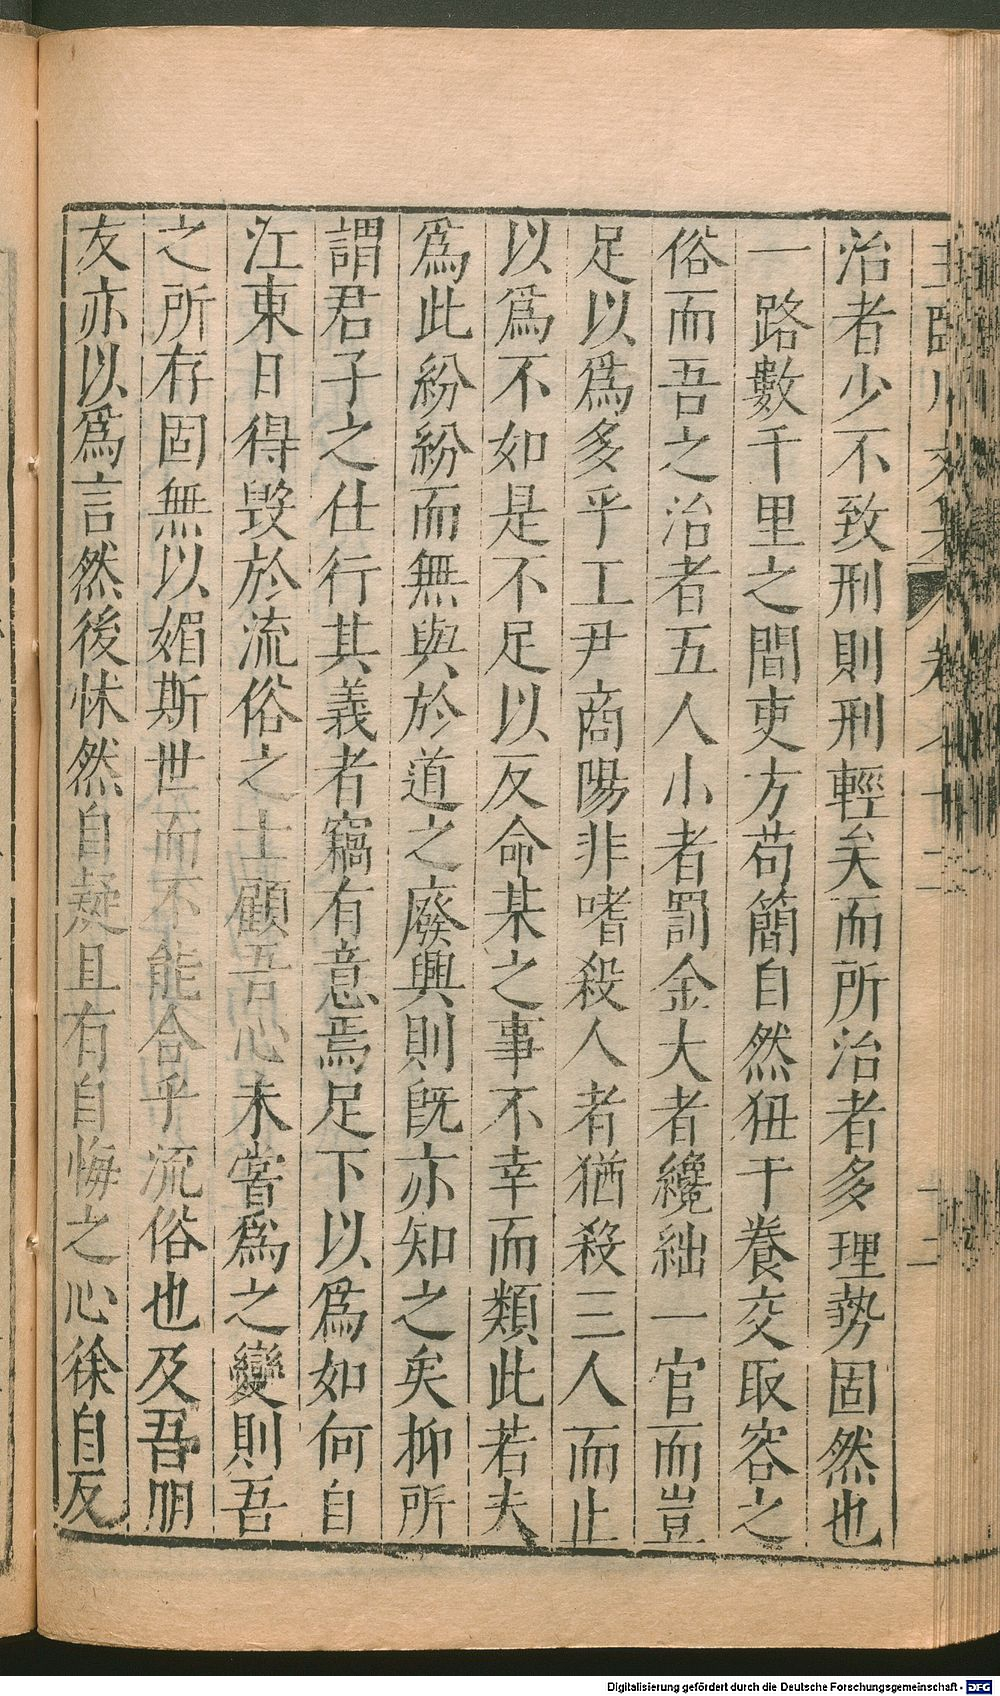 治者少不致刑則刑輕矣而所治者多理勢固然也
一路數千里之間吏方苟簡自然狃于養交取容之
俗而吾之治者五人小者罰金大者纔絀一官而豈
足以爲多乎工尹商陽非嗜殺人者猶殺三人而止
以爲不如是不足以反命某之事不幸而類此若夫
爲此紛紛而無與於道之廢興則旣亦知之矣抑所
謂君子之仕行其義者竊有意焉足下以爲如何自
江東日得毀於流俗之士顧吾心未嘗爲之變則吾
之所存固無以媚斯世而不能合乎流俗也及吾朋
友亦以爲言然後怵然自疑且有自悔之心徐自反
Digitalisierung gefördert durch die Deutsche Forschungsgemeinschaft - DFG